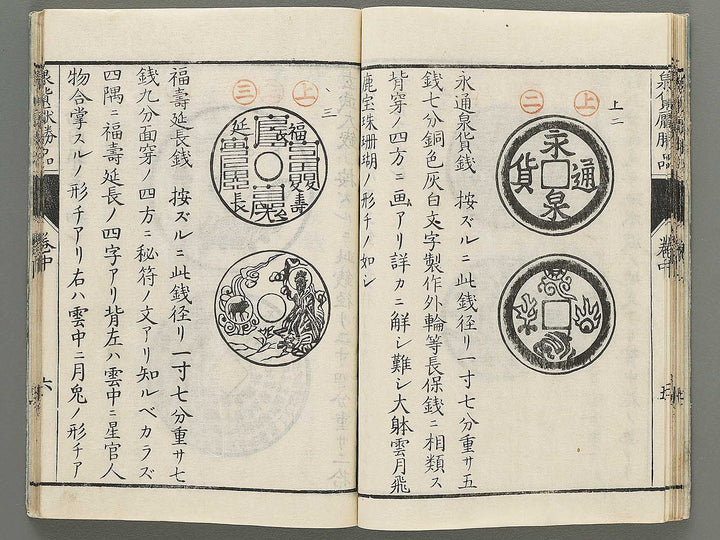 上二
上
二
永
通
泉
貨
永通泉貨銭 按ズルニ此銭径リ一寸七分重サ五
銭七分銅色灰白文字製作外輪等長保銭ニ相類ス
背穿ノ四方ニ画アリ詳カニ解シ難シ大躰雲月飛
鹿宝珠珊瑚ノ形チノ如シ
巻中
三
上
三
福
壽
延
長
福壽延長銭 按ズルニ此銭径リ一寸七分重サ七
銭九分面穿ノ四方ニ秘符ノ文アリ知ルベカラズ
四隅ニ福壽延長ノ四字アリ背左ハ雲中ニ星官人
物合掌スルノ形チアリ右ハ雲中ニ月兎ノ形チア
巻中
六